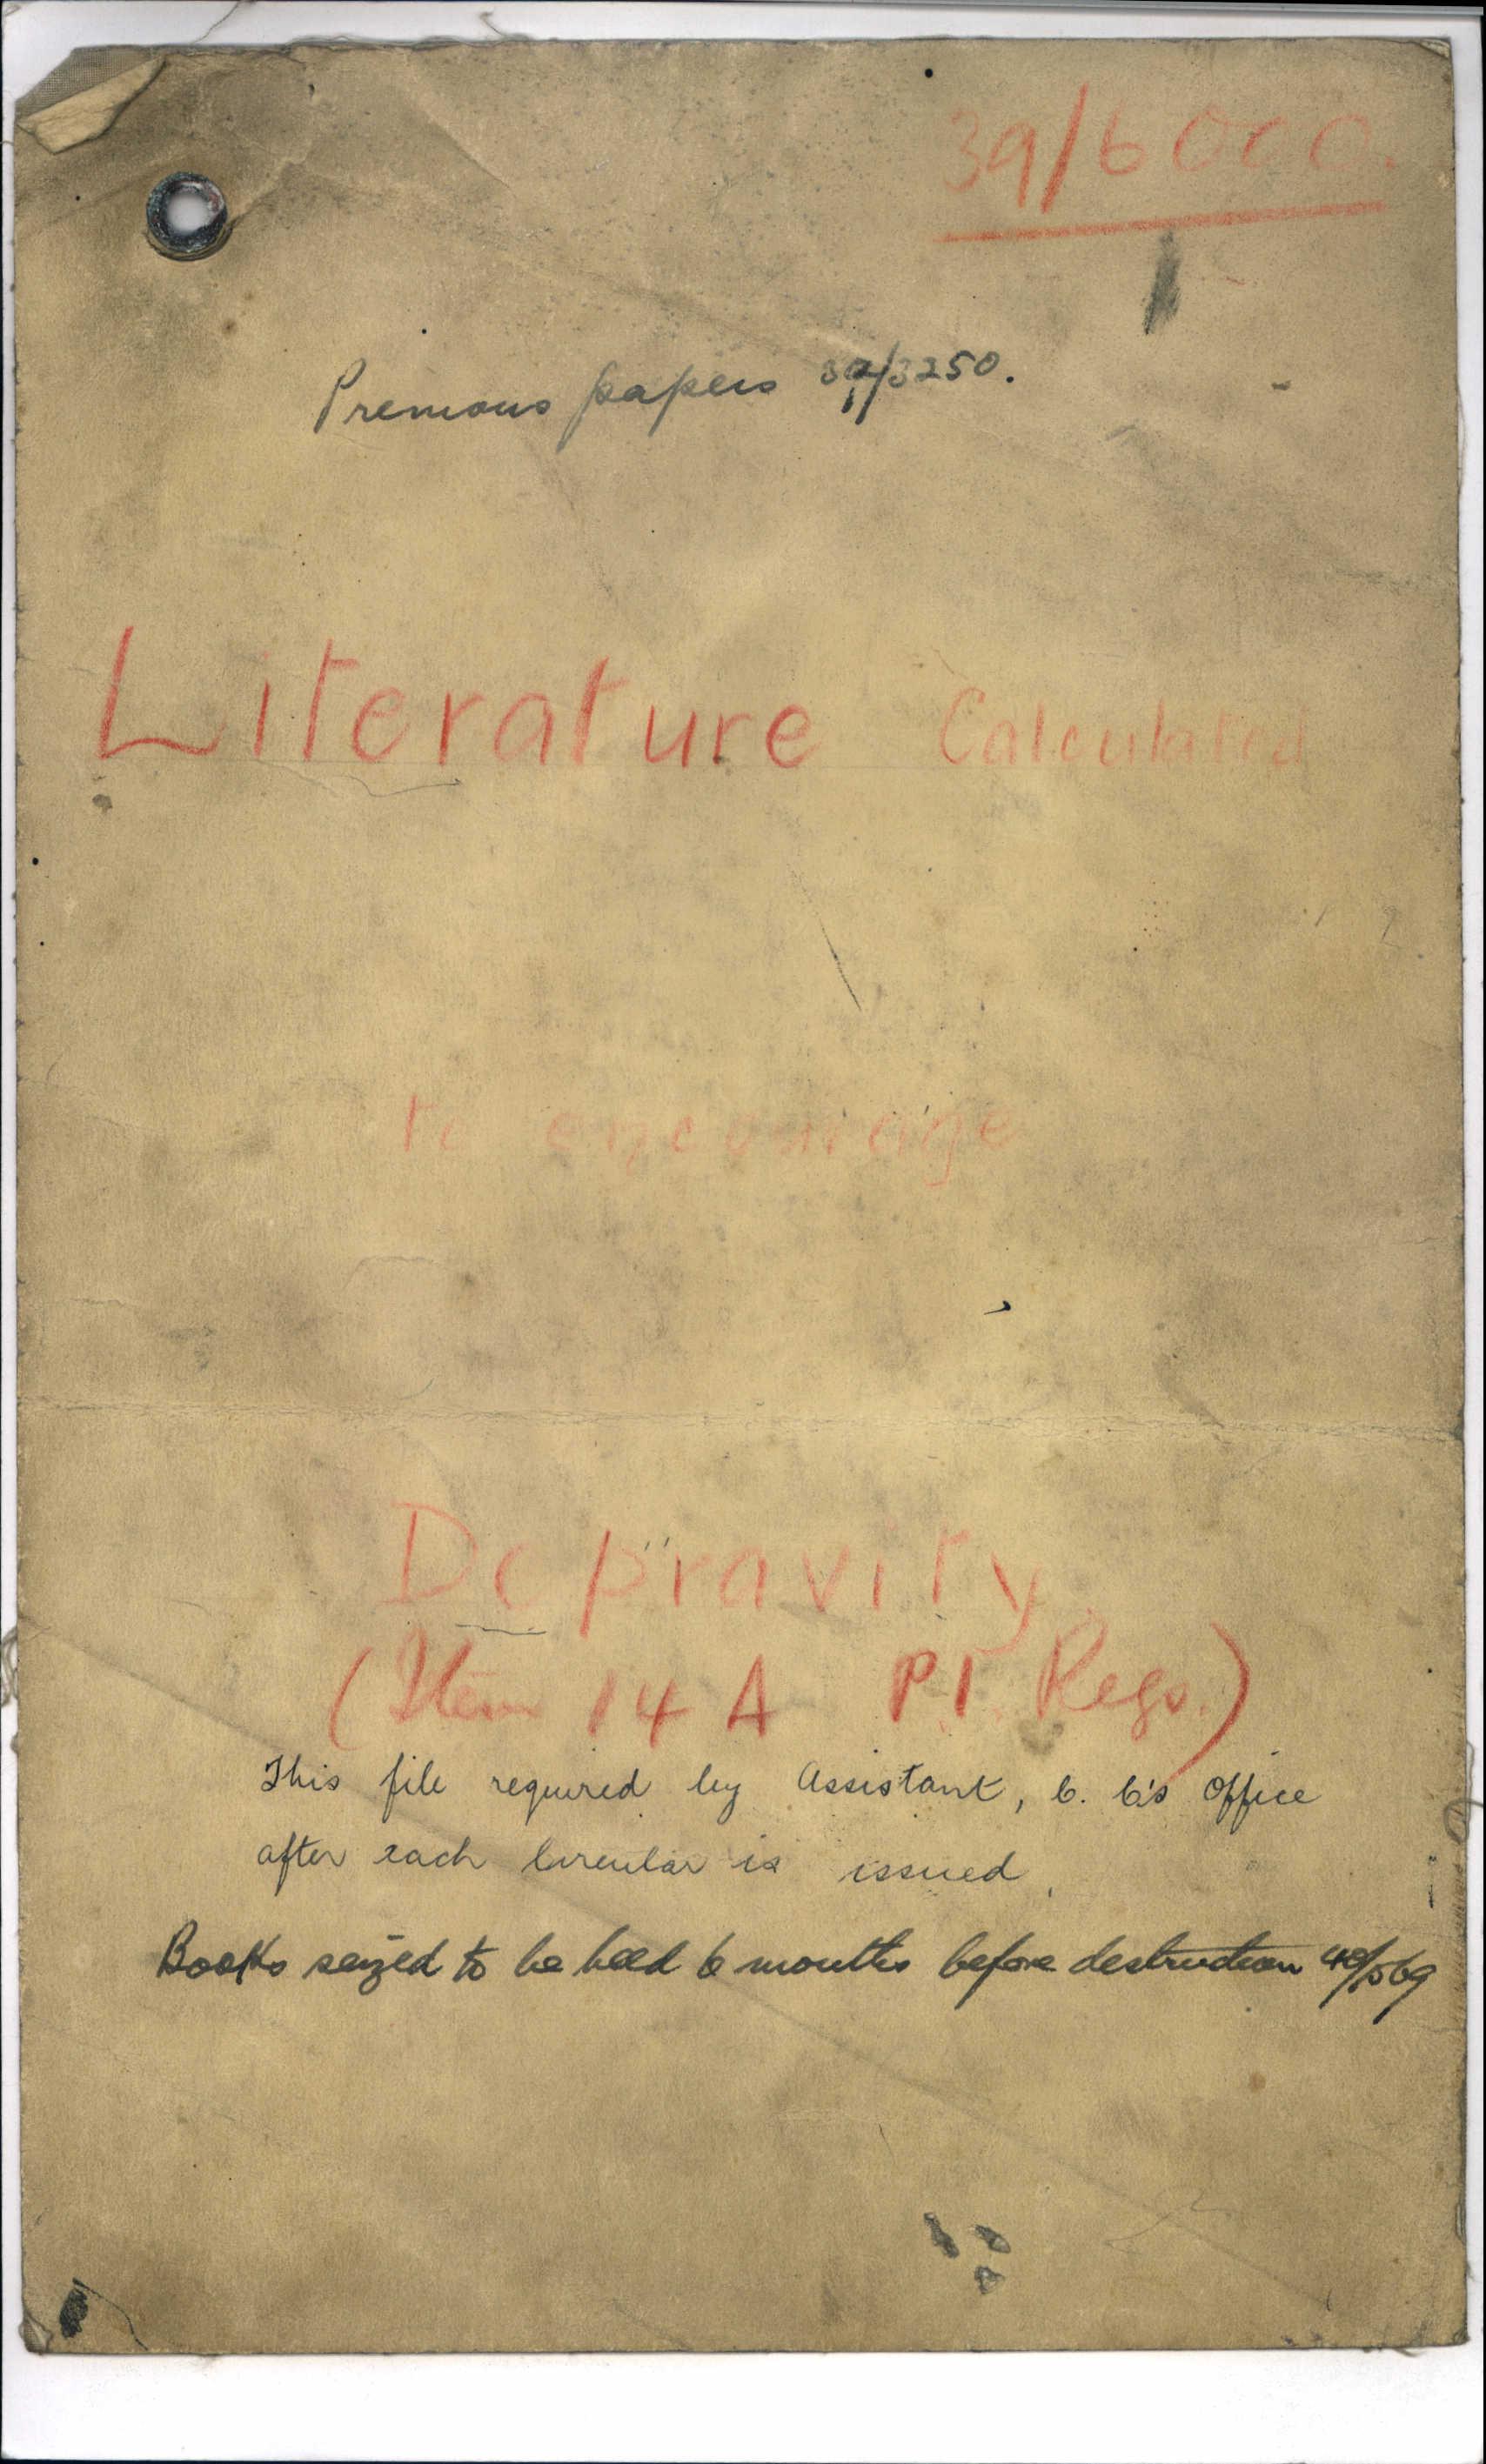 39/6000.
Previous papers 39/3250.
Literature Calculated
to encourage
Depravity
(Item 14 A P.I. Regs.)
This file required by Assistant, C. C's Office
after each Circular is issued.
Books seized to be held 6 months before destruction 40/569